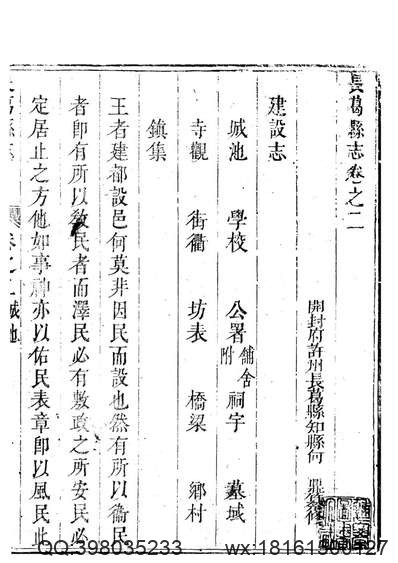 長葛縣志卷之二
開封府許州長葛縣知縣何鼎
建設志
城池 學校 公署 舖舍附 祠宇 墓域
寺觀 街衢 坊表 橋梁 鄉村
鎮集
王者建都設邑何莫非因民而設也然有所以衞民
者即有所以教民者而澤民必有敷政之所安民必
定居止之方他如事神亦以佑民表章即以風民此
卷之二城池
QQ:398035233 wx:18161500127